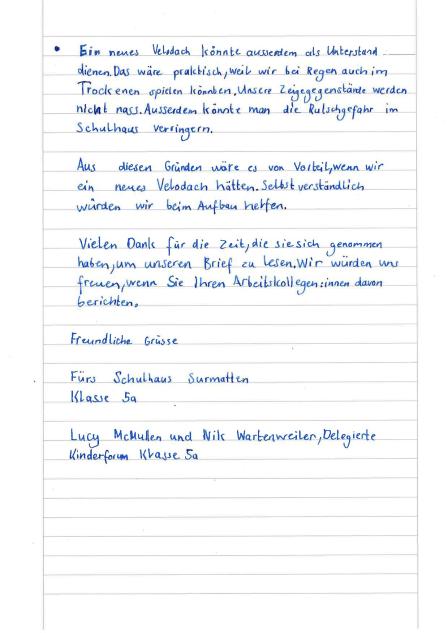 • Ein neues Velodach könnte ausserdem als Unterstand
dienen. Das wäre praktisch, weil wir bei Regen auch im
Trockenen spielen könnten. Unsere Zeigegegenstände werden
nicht nass. Ausserdem könnte man die Rutschgefahr im
Schulhaus verringern.
Aus diesen Gründen wäre es von Vorteil, wenn wir
ein neues Velodach hätten. Selbstverständlich
würden wir beim Aufbau helfen.
Vielen Dank für die Zeit, die sie sich genommen
haben, um unseren Brief zu lesen. Wir würden uns
freuen, wenn Sie Ihren Arbeitskollegen:innen davon
berichten.
Freundliche Grüsse
Fürs Schulhaus Surmatten
Klasse 5a
Lucy McMullen und Nik Wartenweiler, Delegierte
Kinderforum Klasse 5a